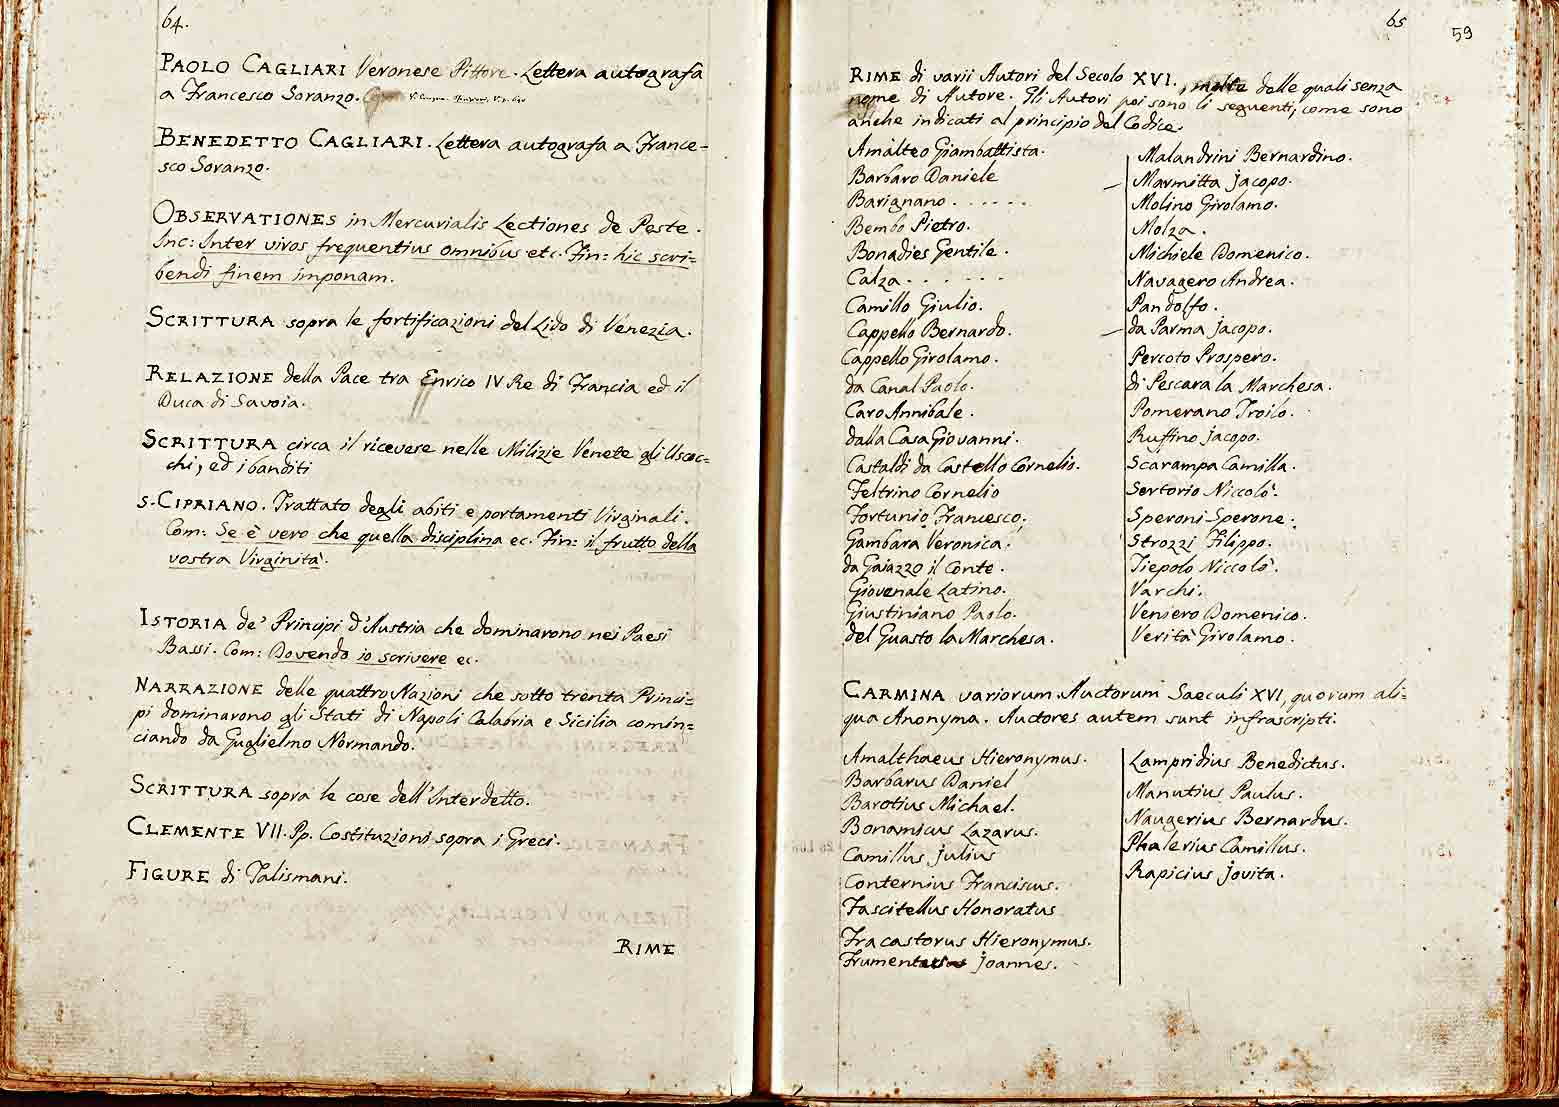 64.
PAOLO CAGLIARI Veronese Pittore. Lettera autografa
a Francesco Soranzo.
BENEDETTO CAGLIARI. Lettera autografa a France-
sco Soranzo.
OBSERVATIONES in Mercurialis Lectiones de Peste.
Inc: Inter viros frequentius omnibus etc. Fin: hic scri-
bendi finem imponam.
SCRITTURA sopra le fortificazioni del Lido di Venezia.
RELAZIONE della Pace tra Enrico IV Re di Francia ed il
Duca di Savoia.
SCRITTURA circa il ricevere nelle Milizie Venete gli Uscoc-
chi, ed i banditi
S. CIPRIANO. Trattato degli abiti e portamenti Virginali.
Com: Se è vero che quella disciplina ec. Fin: il frutto della
vostra Virginità.
ISTORIA de' Principi d'Austria che dominarono nei Paesi
Bassi. Com: Dovendo io scrivere ec.
NARRAZIONE delle quattro Nazioni che sotto trenta Princi-
pi dominarono gli Stati di Napoli Calabria e Sicilia comin-
ciando da Guglielmo Normando.
SCRITTURA sopra le cose dell'Interdetto.
CLEMENTE VII. Pp. Costituzioni sopra i Greci.
FIGURE di Talismani.
RIME
65
59
RIME di varii Autori del Secolo XVI., molte delle quali senza
nome di Autore. Gli Autori poi sono li seguenti, come sono
anche indicati al principio del Codice.
Amalteo Giambattista.
Barbaro Daniele
Barignano . . . . . .
Bembo Pietro.
Bonadies Gentile.
Calza . . . . . .
Camillo Giulio.
Cappello Bernardo.
Cappello Girolamo.
da Canal Paolo.
Caro Annibale.
dalla Casa Giovanni.
Castaldi da Castello Cornelio.
Feltrino Cornelio
Fortunio Francesco.
Gambara Veronica.
da Gaiazzo il Conte.
Giovenale Latino.
Giustiniano Paolo.
del Guasto la Marchesa.
Malandrini Bernardino.
Marmitta Jacopo.
Molino Girolamo.
Molza.
Michiele Domenico.
Navagero Andrea.
Pandolfo.
da Parma Jacopo.
Percoto Prospero.
di Pescara la Marchesa.
Pomerano Troilo.
Ruffino Jacopo.
Scarampa Camilla.
Sertorio Niccolò.
Speroni Sperone.
Strozzi Filippo.
Tiepolo Niccolò.
Varchi.
Veniero Domenico.
Verità Girolamo.
CARMINA variorum Auctorum Saeculi XVI, quorum ali-
qua Anonyma. Auctores autem sunt infrascripti.
Amalthaeus Hieronymus.
Barbarus Daniel
Barotius Michael.
Bonamicus Lazarus.
Camillus Julius
Conternius Franciscus.
Fascitellus Honoratus
Fracastorus Hieronymus.
Joannes.
Lampridius Benedictus.
Manutius Paulus.
Naugerius Bernardus.
Phalerius Camillus.
Rapicius Jovita.